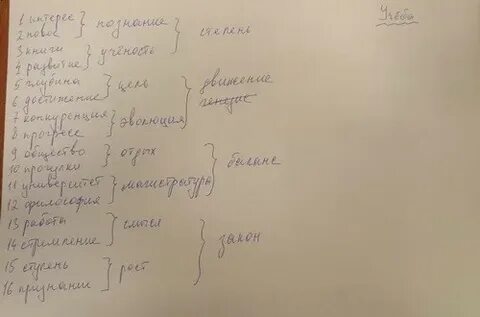 Учёба
1 интерес } познание } степень
2 новое
3 книги } учёность
4 развитие
5 глубина } цель } движение
6 достижение генезис
7 конкуренция } эволюция
8 прогресс
9 общество } отдых } баланс
10 прогулки
11 университет } магистратура
12 философия
13 работа } смысл } закон
14 стремление
15 ступень } рост
16 признание